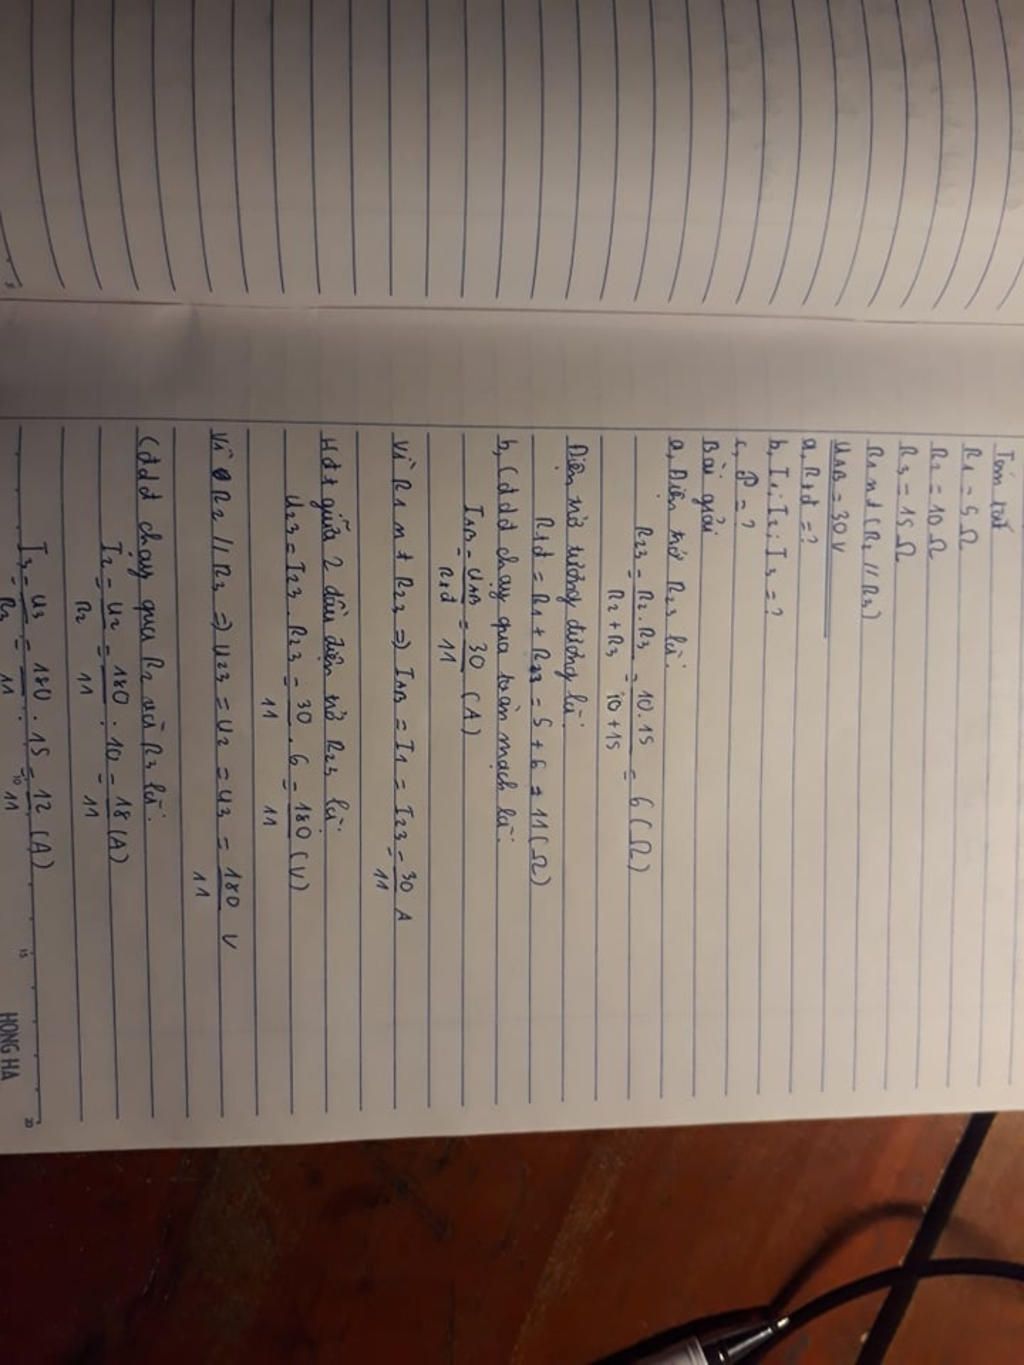 Tóm tắt
R1 = 5 Ω
R2 = 10 Ω
R3 = 15 Ω
R1 nt (R2 // R3)
UAB = 30 V
a, Rtđ = ?
b, I1; I2; I3 = ?
c, P = ?
Bài giải
a, Điện trở R23 là:
R23 = R2.R3 / R2 + R3 = 10.15 / 10 + 15 = 6 (Ω)
Điện trở tương đương là:
Rtđ = R1 + R23 = 5 + 6 = 11 (Ω)
b, Cđdđ chạy qua toàn mạch là:
IAB = UAB / Rtđ = 30 / 11 (A)
Vì R1 nt R23 => IAB = I1 = I23 = 30 / 11 A
Hđt giữa 2 đầu điện trở R23 là:
U23 = I23 . R23 = 30 / 11 . 6 = 180 / 11 (V)
Vì R2 // R3 => U23 = U2 = U3 = 180 / 11 V
Cđdđ chạy qua R2 và R3 là:
I2 = U2 / R2 = 180 / 11 : 10 = 18 / 11 (A)
I3 = U3 / R3 = 180 / 11 : 15 = 12 / 11 (A)
10
15
20
HONG HA